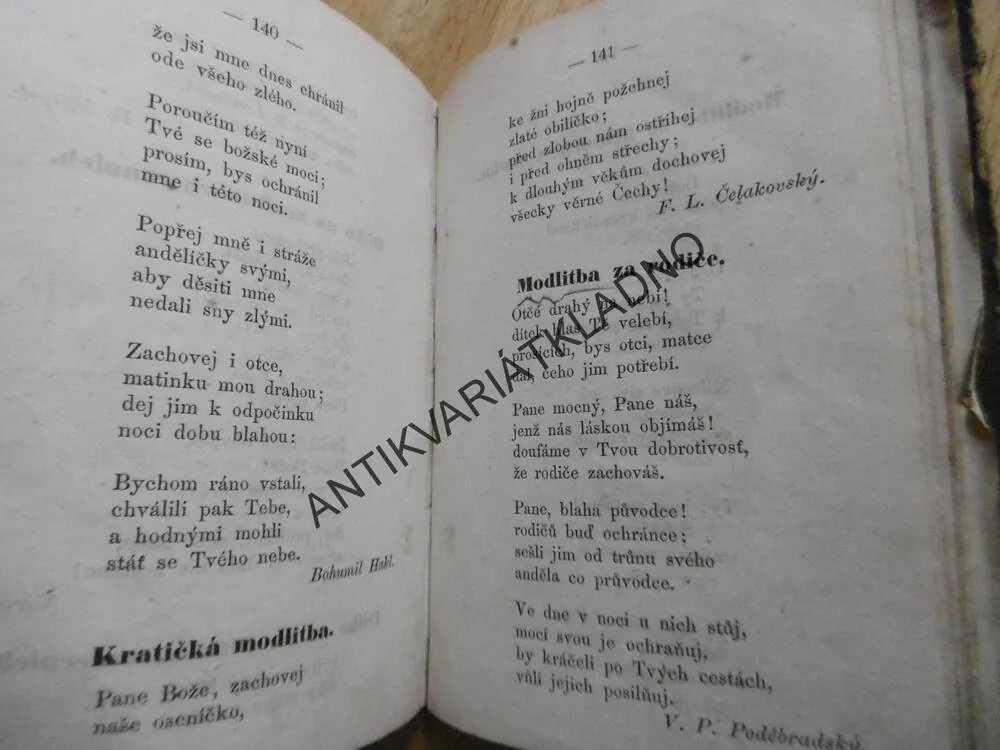 — 140 —
že jsi mne dnes chránil
ode všeho zlého.
Poroučím též nyní
Tvé se božské moci;
prosím, bys ochránil
mne i této noci.
Popřej mně i stráže
andělíčky svými,
aby děsiti mne
nedali sny zlými.
Zachovej i otce,
matinku mou drahou;
dej jim k odpočinku
noci dobu blahou:
Bychom ráno vstali,
chválili pak Tebe,
a hodnými mohli
stáť se Tvého nebe.
Bohumil Hakl.
Kratičká modlitba.
Pane Bože, zachovej
naše oseníčko,
— 141 —
ke žni hojně požehnej
zlaté obilíčko;
před zlobou nám ostříhej
i před ohněm střechy;
k dlouhým věkům dochovej
všecky věrné Čechy!
F. L. Čelakovský.
Modlitba za rodiče.
Otče drahý na nebi!
dítek hlas Tě velebí,
prosících, bys otci, matce
dal, čeho jim potřebí.
Pane mocný, Pane náš,
jenž nás láskou objímáš!
doufáme v Tvou dobrotivosť,
že rodiče zachováš.
Pane, blaha původce!
rodičů buď ochránce;
sešli jim od trůnu svého
anděla co průvodce.
Ve dne v noci u nich stůj,
mocí svou je ochraňuj,
by kráčeli po Tvých cestách,
vůli jejich posilňuj.
V. P. Poděbradský.
ANTIKVARIÁTKLADNO